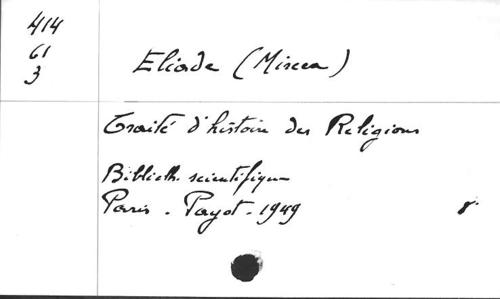 414
61
3
Eliade (Mircea)
Traité d'histoire des Religions
Biblioth. scientifique
Paris - Payot - 1949 8°